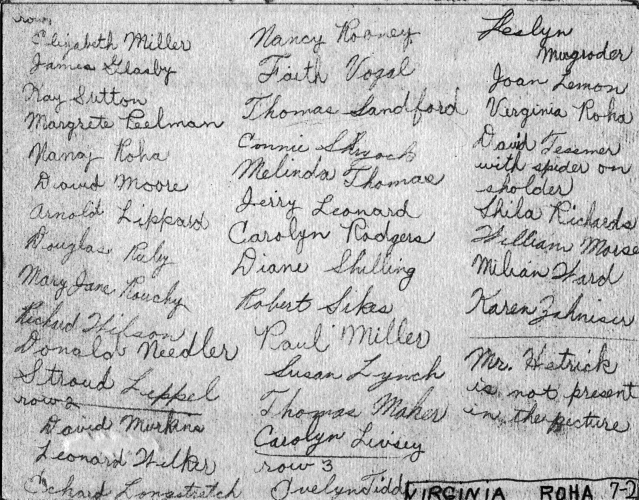 row 1
Elizabeth Miller
James Glasby
Kay Sutton
Margrete Peelman
Nancy Roha
David Moore
Arnold Lippard
Douglas Ruby
Mary Jane Rouchy
Richard Wilson
Donald Needler
Stroud Lippel
row 2
David
Leonard Wilker
Richard Longstretch
Nancy Rooney
Faith Vogal
Thomas Sandford
Connie Shrock
Melinda Thomas
Jerry Leonard
Carolyn Rodgers
Diane Shilling
Robert Sikes
Paul Miller
Susan Lynch
Thomas Maher
Carolyn Livsey
row 3
Evelyn Tidd
Leslyn
Mugroder
Joan Lemon
Virginia Roha
David Tessmer
with spider on
sholder
Shila Richards
William Morse
Milián Ward
Karen Zahniser
Mr. Hetrick
is not present
in the picture
VIRGINIA ROHA 7-2